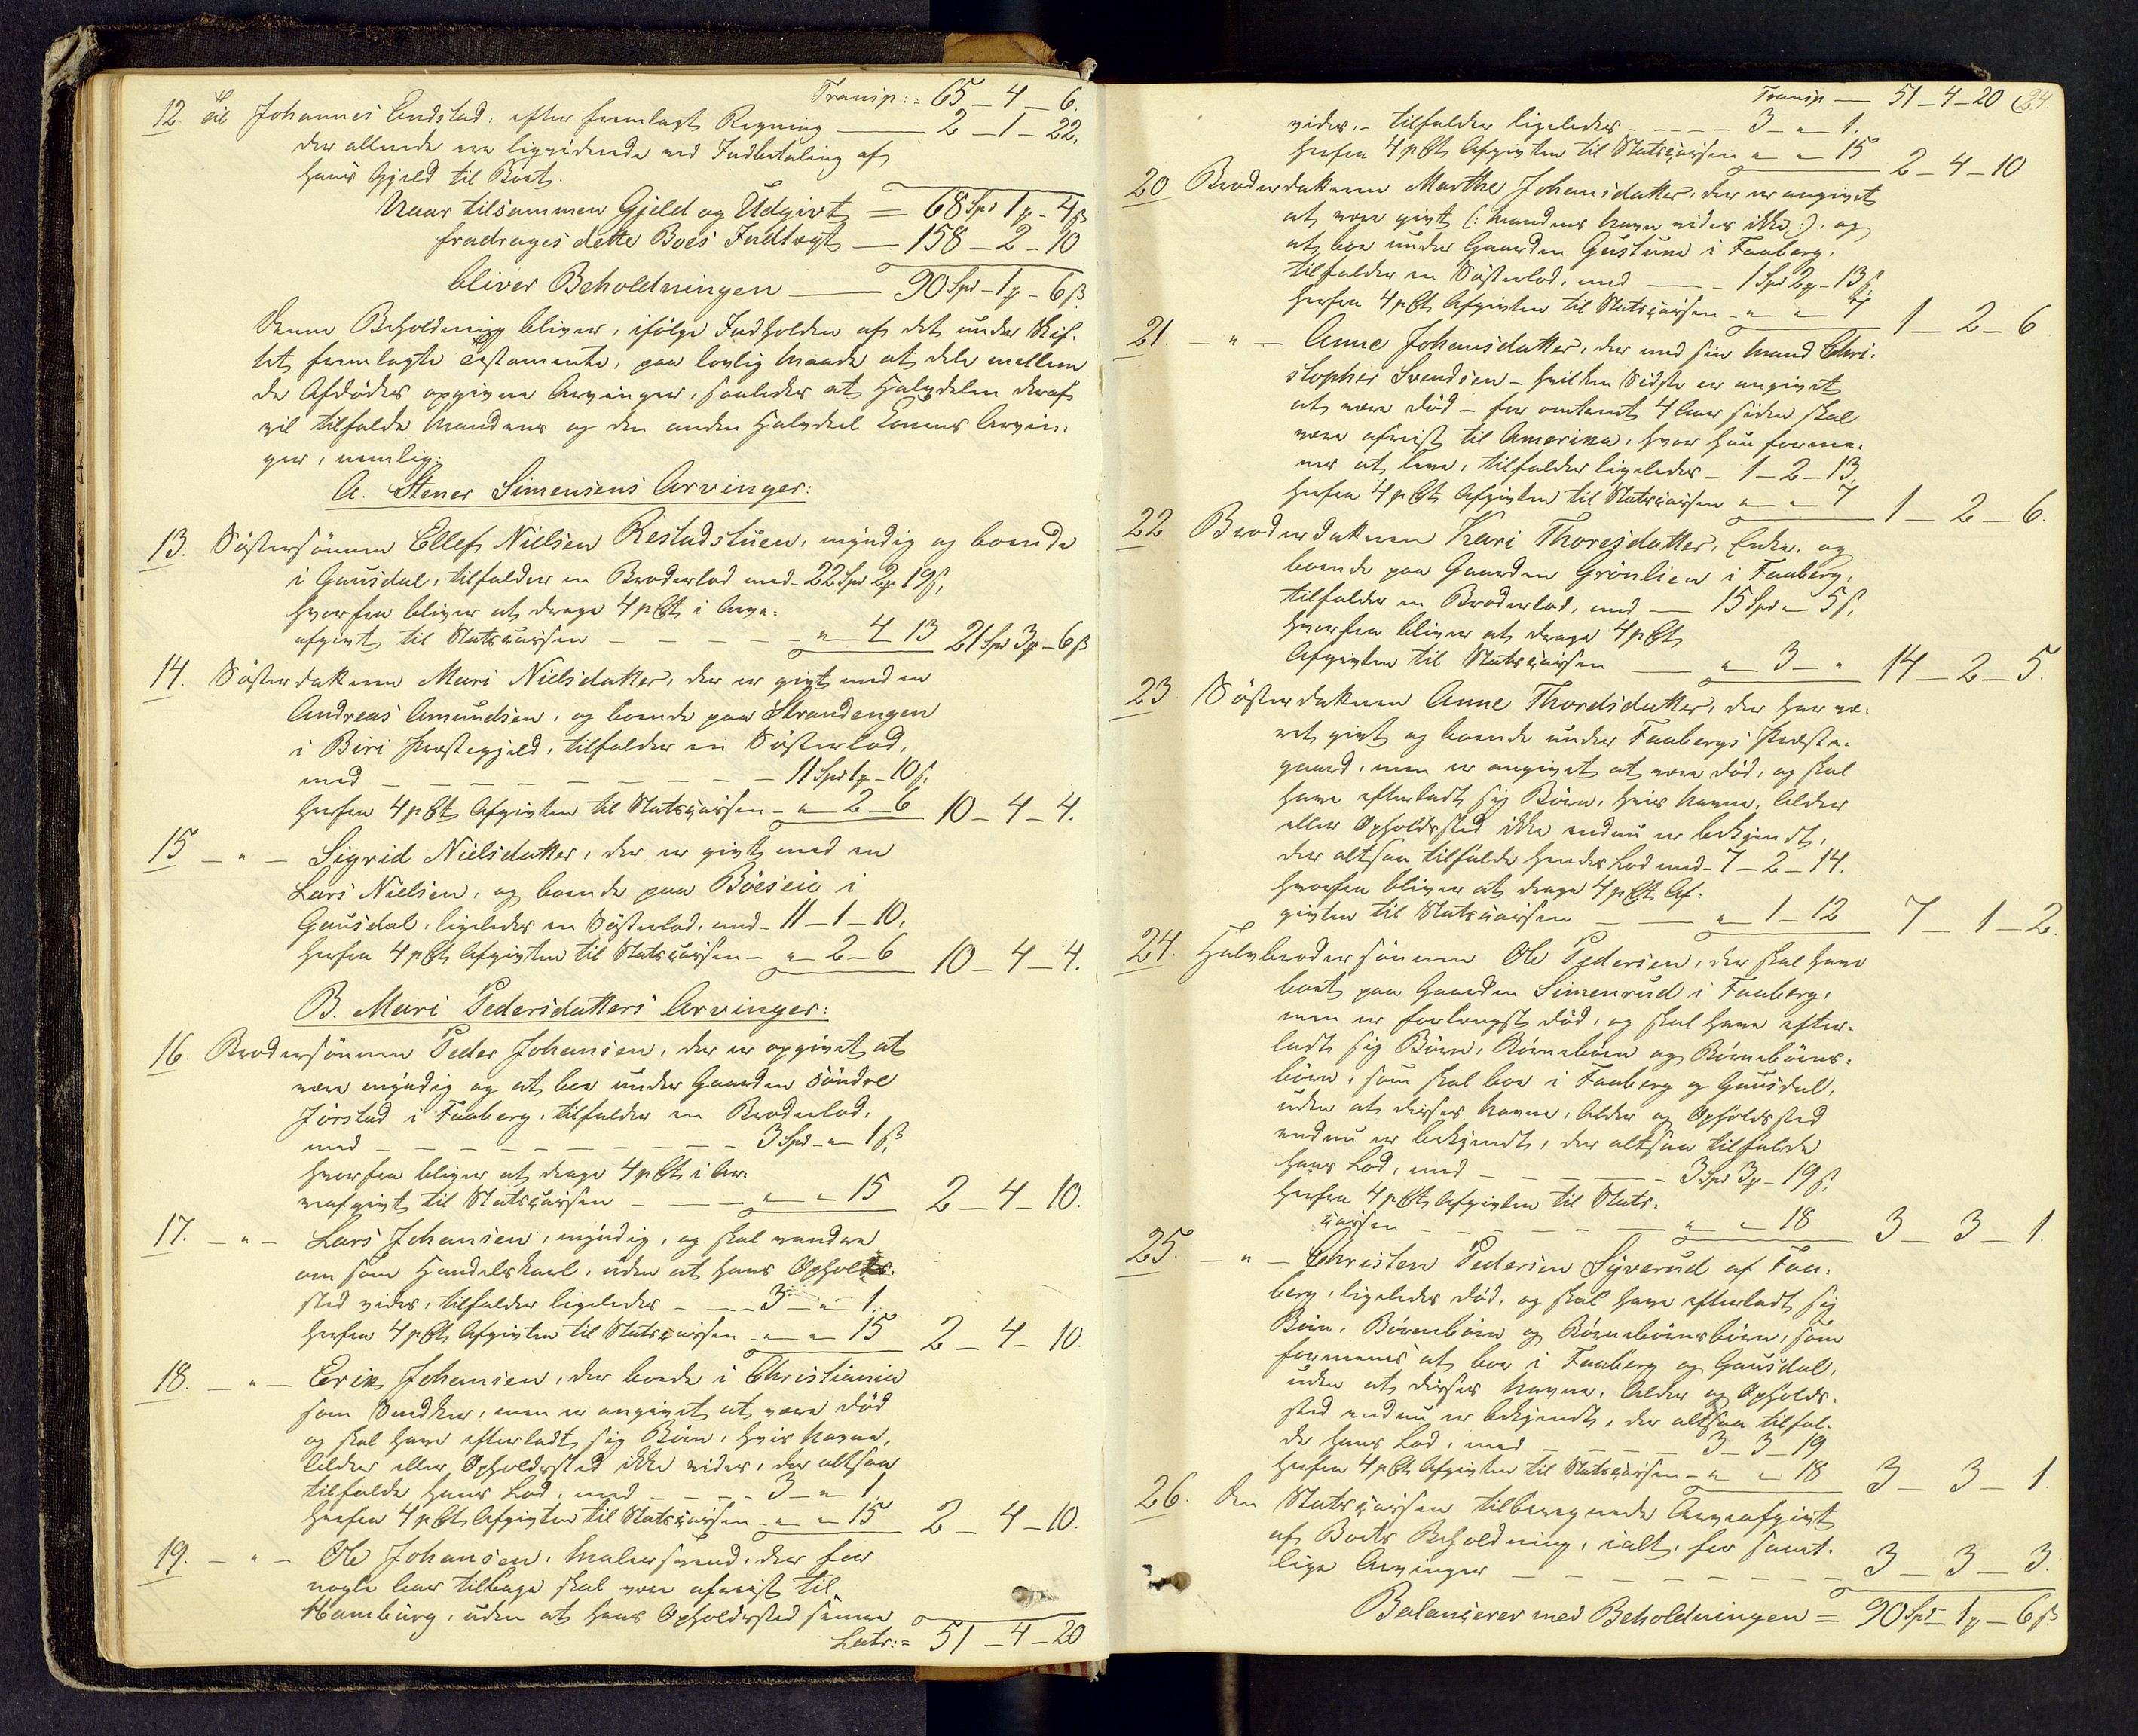 Transp: = 65 – 4 – 6.
12. Til Johannes Endstad, efter fremlagt Regning — 2 – 1 – 22.
der allerede era liqviderede ved Indbetaling af
hans Gjæld til Boet.
Naar tilsammen Gjeld og Udgivt = 68 Spd 1 # – 4 ß
fradrages dette Boes Indtægt — 158 – 2 – 10
bliver Beholdningen — 90 Spd – 1 # – 6 ß.
Denne Beholdning bliver, ifølge Indholden af det under Skif-
tet fremlagte Testamente, paa lovlig Maade at dele mellem
de Afdødes opgivne Arvinger, saaledes at Halvdelen deraf
vil tilfalde Mandens og den anden Halvdeel Konens Arvin-
ger, nemlig:
A. Stener Simensens Arvinger:
13. Søstersønnen Ellef Nielsen Restadstuen, myndig og boende
i Gausdal, tilfalder en Broderlod med – 22 Spd 2 # 19 ß,
hvorfra bliver at drage 4 pCt i Arve-
afgivt til Statscassen – – – – – " – 4 13 21 Spd 3 # – 6 ß
14. Søsterdatteren Mari Nielsdatter, der er givt med en
Andreas Amundsen, og boende paa Strandengen
i Biri Præstegjeld, tilfalder en Søsterlod,
med – – – – – – – – 11 Spd 1 # – 10 ß,
herfra 4 pCt Afgivten til Statscassen – " – 2 – 6 10 – 4 – 4.
15 – " – Sigrid Nielsdatter, der er givt med en
Lars Nielsen, og boende paa Böeseie i
Gausdal, ligeledes en Søsterlod, med – 11 – 1 – 10,
herfra 4 pCt Afgivten til Statscassen – " – 2 – 6 10 – 4 – 4.
B. Mari Pedersdatters Arvinger:
16. Brodersønnen Peder Johansen, der er opgivet at
være myndig og at boe under Gaarden söndre
Jörstad i Faaberg, tilfalder en Broderlod,
med – – – – – – – – 3 Spd – " – 1 ß,
hvorfra bliver at drage 4 pCt i Ar-
veafgivt til Statscassen – – – " – " 15 2 – 4 – 10.
17. – " – Lars Johansen, myndig, og skal vandre
om som Handelskarl, uden at hans Opholds-
sted vides, tilfalder ligeledes – – – 3 – " – 1.
herfra 4 pCt Afgivten til Statscassen – " – " 15 2 – 4 – 10.
18. – " – Erik Johansen, der boede i Christiania
som Snedker, men er angivet at være død
og skal have efterladt sig Børn, hvis Navne,
Alder eller Opholdssted ikke vides, der altsaa
tilfalde hans Lod, med – – – – 3 – " – 1.
herfra 4 pCt Afgivten til Statscassen – " – " 15 2 – 4 – 10.
19. – " – Ole Johansen, Malersvend, der for
nogle Aar tilbage skal være afreist til
Hamburg, uden at hans Opholdssted senere
Latr: = 51 – 4 – 20
Transp — 51 – 4 – 20 (24.
vides, – tilfalder ligeledes – – – – 3 – " – 1.
herfra 4 pCt Afgivten til Statscassen " – " – 15 2 – 4 – 10
20 Broderdatteren Marthe Johansdatter, der er angivet
at være givt (: Mandens Navn vides ikke :), og
at boe under Gaarden Gustum i Faaberg,
tilfalder en Søsterlod, med — – 1 Spd 2 # – 13 ß,
herfra 4 pCt Afgivten til Statscassen – " – " 7 1 – 2 – 6
21. – " – Anne Johansdatter, der med sin Mand Chri-
stopher Svendsen – hvilken Sidste er angivet
at være død – for omtrent 4 Aar siden skal
være afreist til Amerika, hvor hun forme-
nes at leve, tilfalder ligeledes – 1 – 2 – 13,
herfra 4 pCt Afgivten til Statscassen " – " 7 1 – 2 – 6.
22 Broderdatteren Kari Thoresdatter, Enke, og
boende paa Gaarden Grönlien i Faaberg,
tilfalder en Broderlod, med — 15 Spd – " 5 ß,
hvorfra bliver at drage 4 pCt
Afgivten til Statscassen — " – 3 – " 14 – 2 – 5.
23 Søsterdatteren Anne Thordsdatter, der har væ-
ret givt og boende under Faabergs Præste-
gaard, men er angivet at være død, og skal
have efterladt sig Børn, hvis Navne, Alder
eller Opholdssted ikke endnu er bekjendt,
der altsaa tilfalde hendes Lod med – 7 – 2 – 14.
hvorfra bliver at drage 4 pCt Af-
givten til Statscassen – — " – 1 – 12 7 – 1 – 2.
24. Halvbrodersønnen Ole Pedersen, der skal have
boet paa Gaarden Simenrud i Faaberg,
men er forlængst død, og skal have efter-
ladt sig Børn, Børnebørn og Børnebørns-
børn, som skal boe i Faaberg og Gausdal,
uden at disses Navne, Alder og Opholdssted
endnu er bekjendt, der altsaa tilfalde
hans Lod, med – – – – – 3 Spd 3 # – 19 ß,
herfra 4 pCt Afgivten til Stats-
cassen – – – – – – " – " 18 3 – 3 – 1.
25. – " – Christen Pedersen Syverud af Faa-
berg, ligeledes død, og skal have efterladt sig
Börn, Börnebörn og Börnebörnsbörn, som
formenes at boe i Faaberg og Gausdal,
uden at disses Navne, Alder og Opholds-
sted endnu er bekjendt, der altsaa tilfal-
de hans Lod, med – – – – – 3 – 3 – 19
herfra 4 pCt Afgivten til Statscassen – " – " 18 3 – 3 – 1.
26. Den Statscassen tilberegnede Arveafgivt
af Boets Beholdning, ialt, for samt-
lige Arvinger – – – – – – – – 3 – 3 – 3.
Balancerer med Beholdningen = 90 Spd – 1 # – 6 ß.